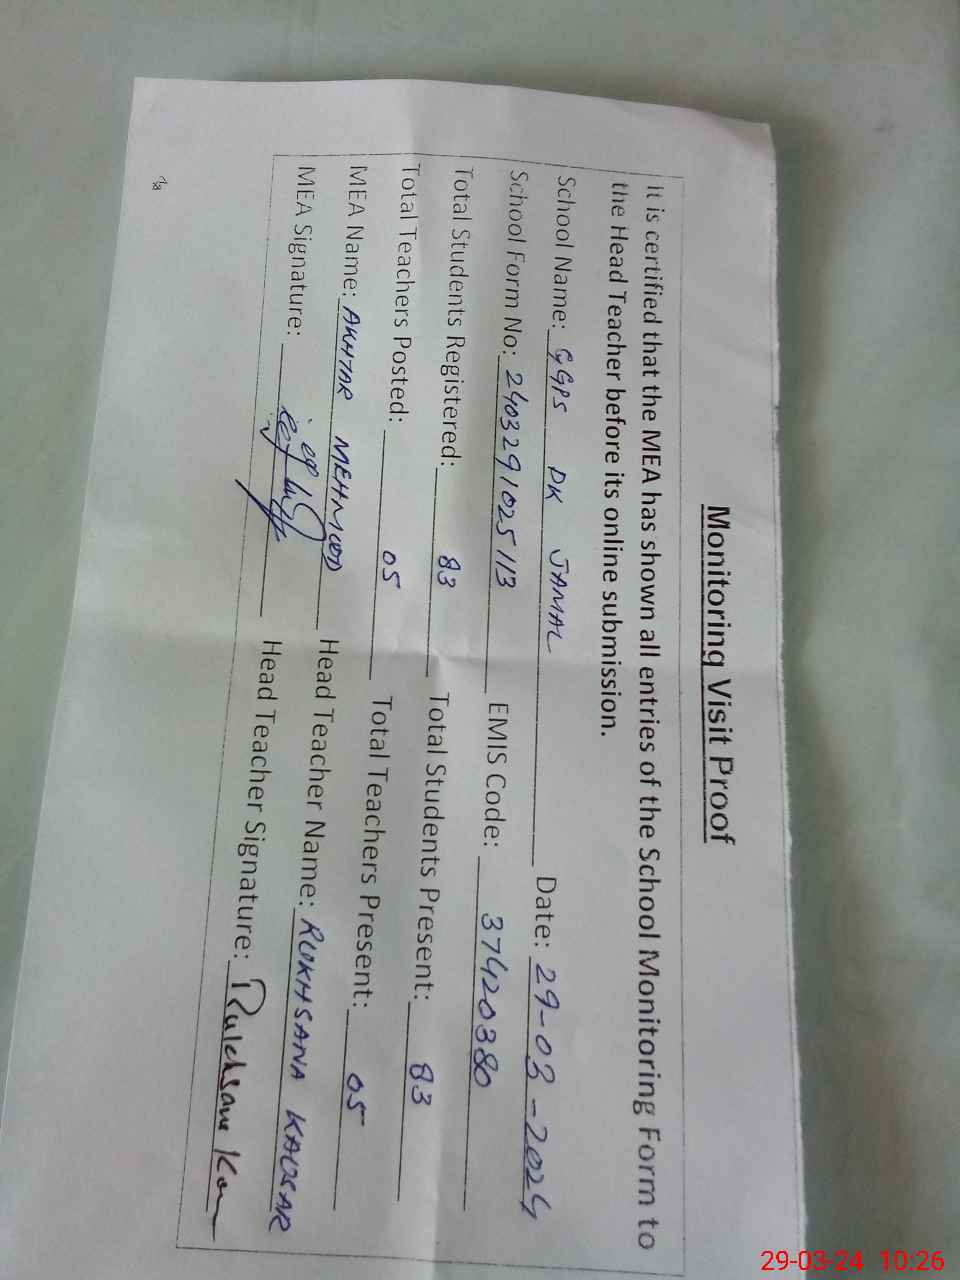 Monitoring Visit Proof
It is certified that the MEA has shown all entries of the School Monitoring Form to
the Head Teacher before its online submission.
School Name: GGPS DK JAMAL Date: 29-03-2024
School Form No: 2403291025113 EMIS Code: 37420380
Total Students Registered: 83 Total Students Present: 83
Total Teachers Posted: 05 Total Teachers Present: 05
MEA Name: AKHTAR MEHMOOD Head Teacher Name: RUKHSANA KAUSAR
MEA Signature: Head Teacher Signature: Rukhsana
29-03-24 10:26